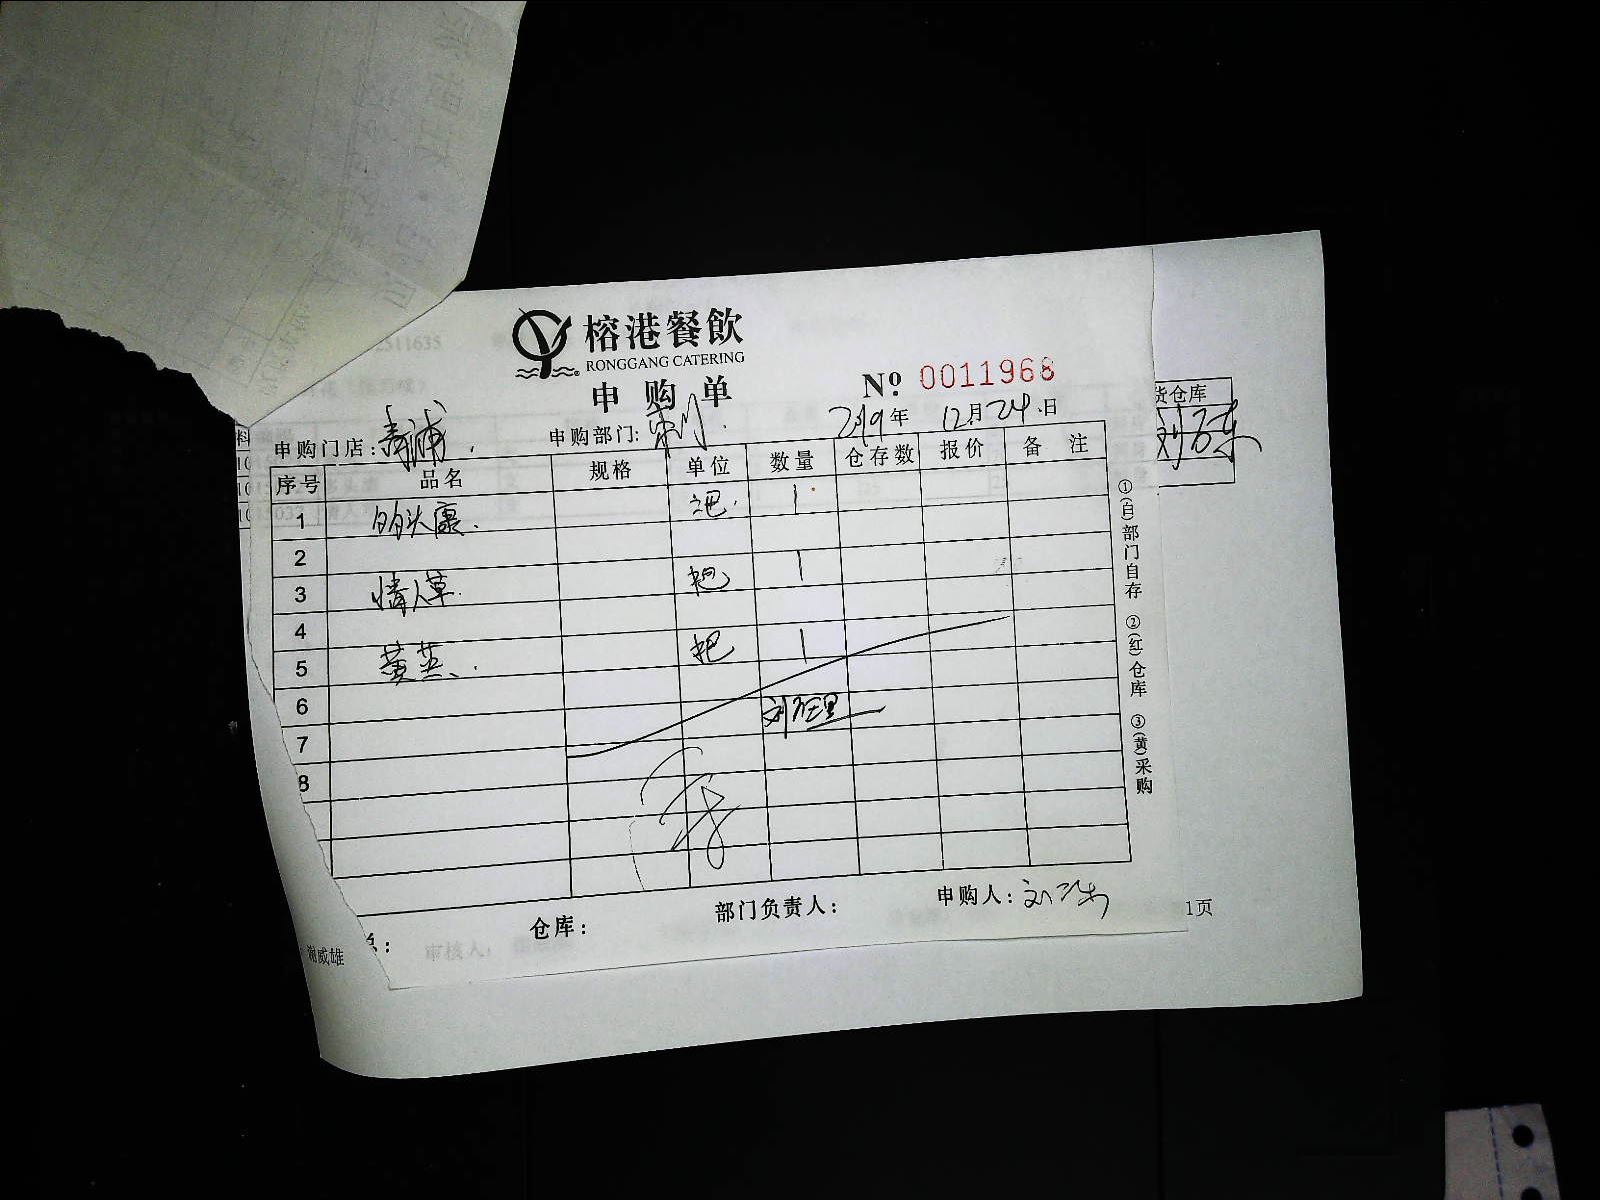 榕港餐飲
RONGGANG CATERING
申购单
№ 0011968
申购门店：青浦 申购部门： 2019年 12月24日
序号 品名 规格 单位 数量 仓存数 报价 备注
1 把 1
2
3 情人草 把 1
4
5 黄英 把 1
6 刘经理
7
8
①(白)部门自存 ②(红)仓库 ③(黄)采购
仓库： 部门负责人： 申购人：
货仓库
谢威雄 审核人： 1页